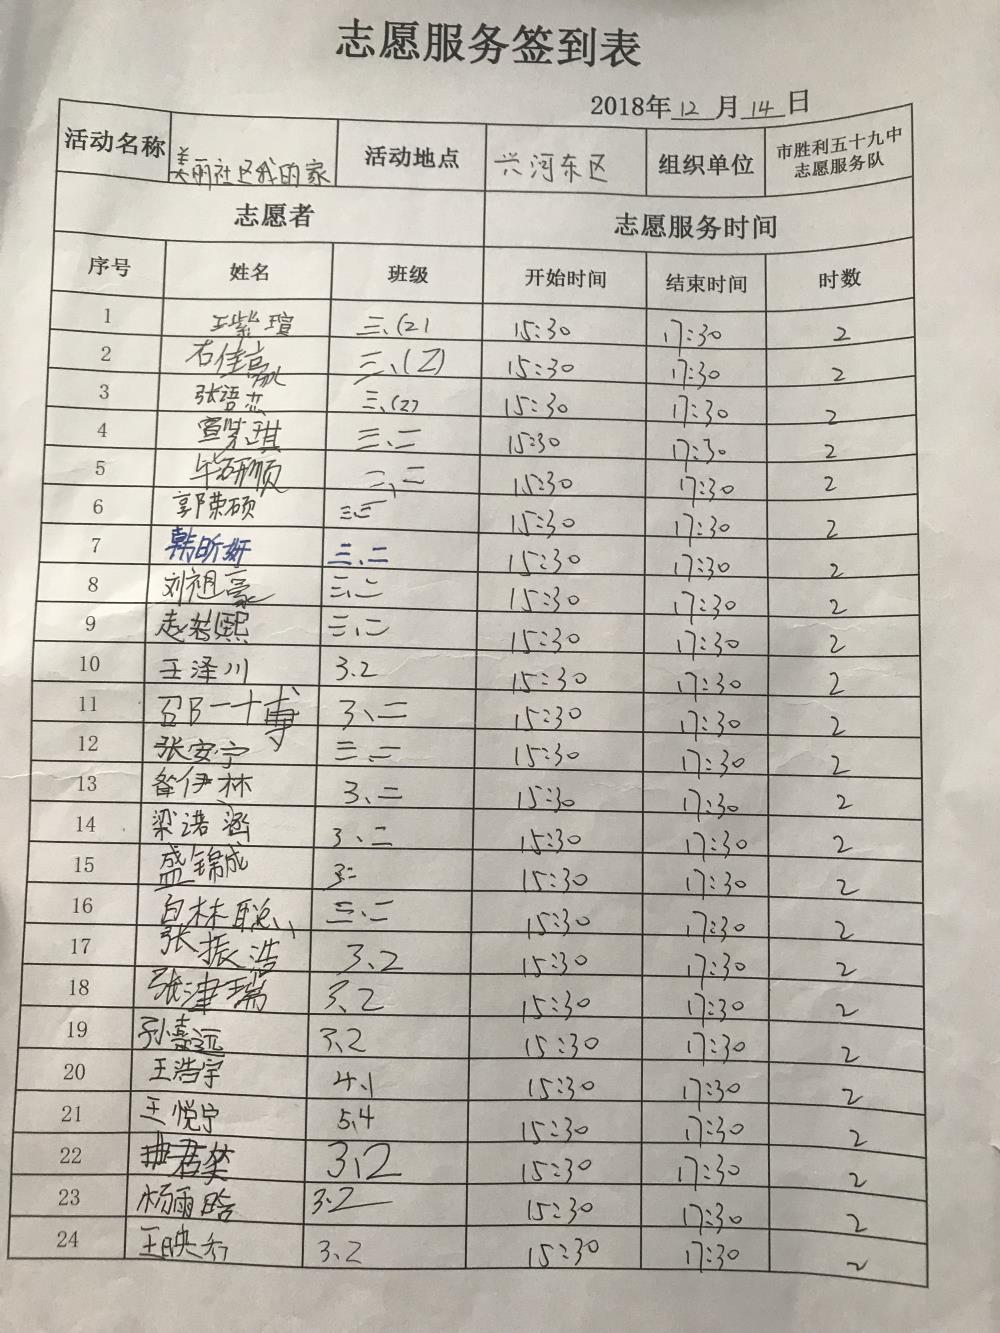 志愿服务签到表
2018年12月14日
活动名称 美丽社区我的家 活动地点 兴河东区 组织单位 市胜利五十九中志愿服务队
志愿者 志愿服务时间
序号 姓名 班级 开始时间 结束时间 时数
1 王紫瑄 三、(2) 15:30 17:30 2
2 石佳赢 三、(2) 15:30 17:30 2
3 张语芯 三、(2) 15:30 17:30 2
4 三、二 15:30 17:30 2
5 毕研顺 二、二 15:30 17:30 2
6 郭荣硕 15:30 17:30 2
7 韩昕妍 三、二 15:30 17:30 2
8 刘祖豪 三、二 15:30 17:30 2
9 赵若熙 三、二 15:30 17:30 2
10 王泽川 3.2 15:30 17:30 2
11 邵一博 3、二 15:30 17:30 2
12 张安宁 三、二 15:30 17:30 2
13 昝伊林 3、二 15:30 17:30 2
14 梁诺涵 3、二 15:30 17:30 2
15 盛锦成 3二 15:30 17:30 2
16 白林聪 三、二 15:30 17:30 2
17 张振浩 3、2 15:30 17:30 2
18 张津瑞 3、2 15:30 17:30 2
19 孙嘉远 3、2 15:30 17:30 2
20 王浩宇 4、1 15:30 17:30 2
21 王悦宁 5,4 15:30 17:30 2
22 3、2 15:30 17:30 2
23 杨雨晗 3、2 15:30 17:30 2
24 3、2 15:30 17:30 2